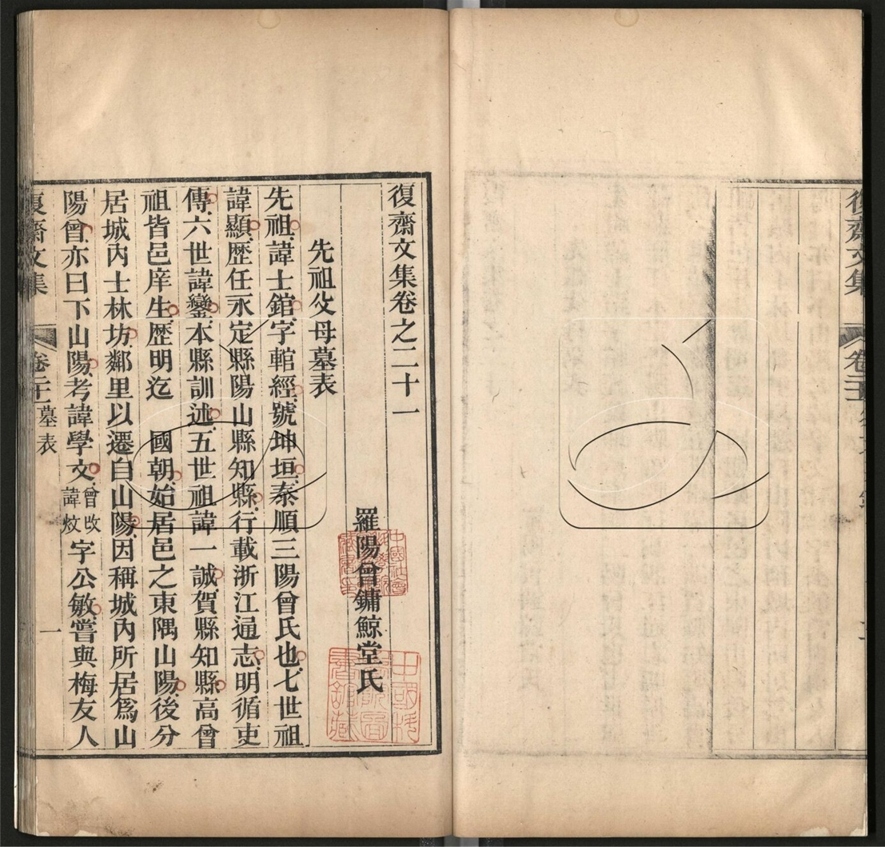 復齋文集卷之二十一
羅陽曾鏞鯨堂氏
先祖父母墓表
先祖諱士錧字輨經號坤垣泰順三陽曾氏也七世祖
諱顯歷任永定縣陽山縣知縣行載浙江通志明循吏
傳六世諱鑾本縣訓述五世祖諱一誠賀縣知縣高曾
祖皆邑庠生歷明迄　國朝始居邑之東隅山陽後分
居城內士林坊鄰里以遷自山陽因稱城內所居爲山
陽曾亦曰下山陽考諱學文曾改諱炆字公敏嘗與梅友人
復齋文集
卷二十一
墓表
一
復齋文集